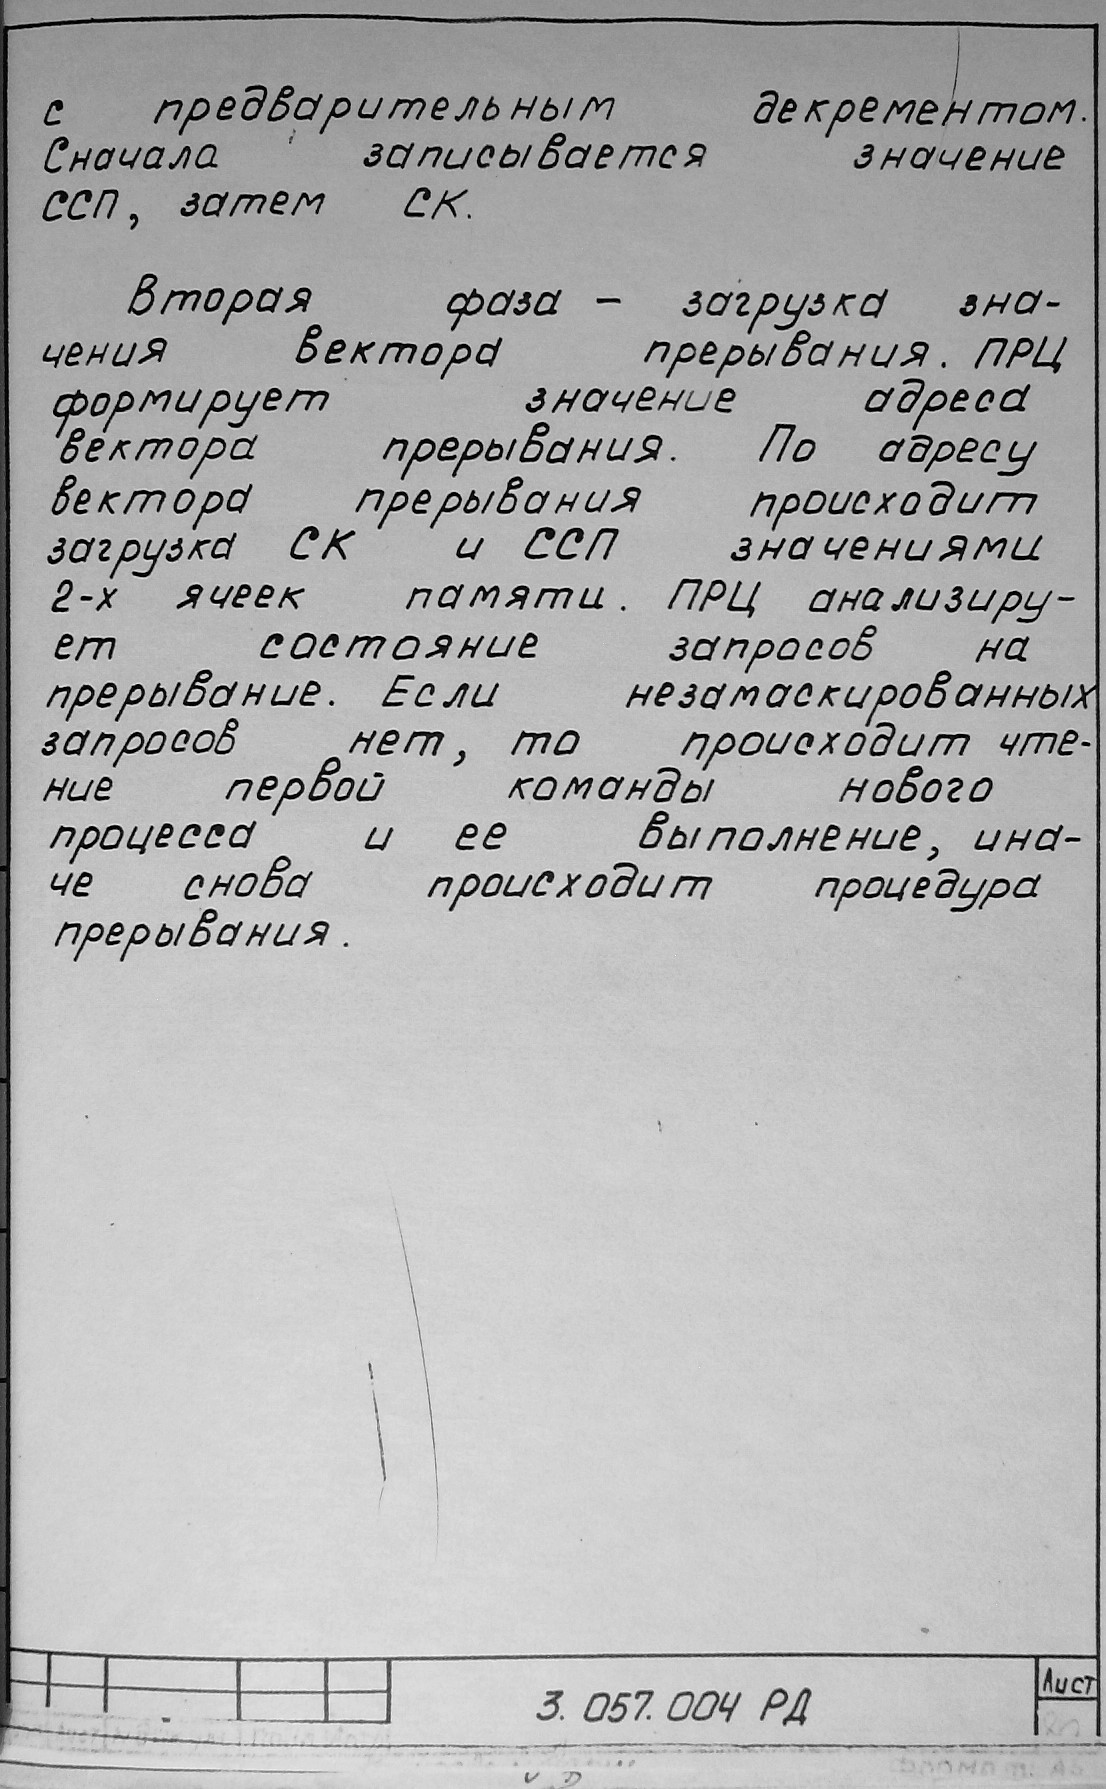 с предварительным декрементом.
Сначала записывается значение
ССП, затем СК.
Вторая фаза – загрузка зна-
чения вектора прерывания. ПРЦ
формирует значение адреса
вектора прерывания. По адресу
вектора прерывания происходит
загрузка СК и ССП значениями
2-х ячеек памяти. ПРЦ анализиру-
ет состояние запросов на
прерывание. Если незамаскированных
запросов нет, то происходит чте-
ние первой команды нового
процесса и ее выполнение, ина-
че снова происходит процедура
прерывания.
3. 057. 004 РД
Лист